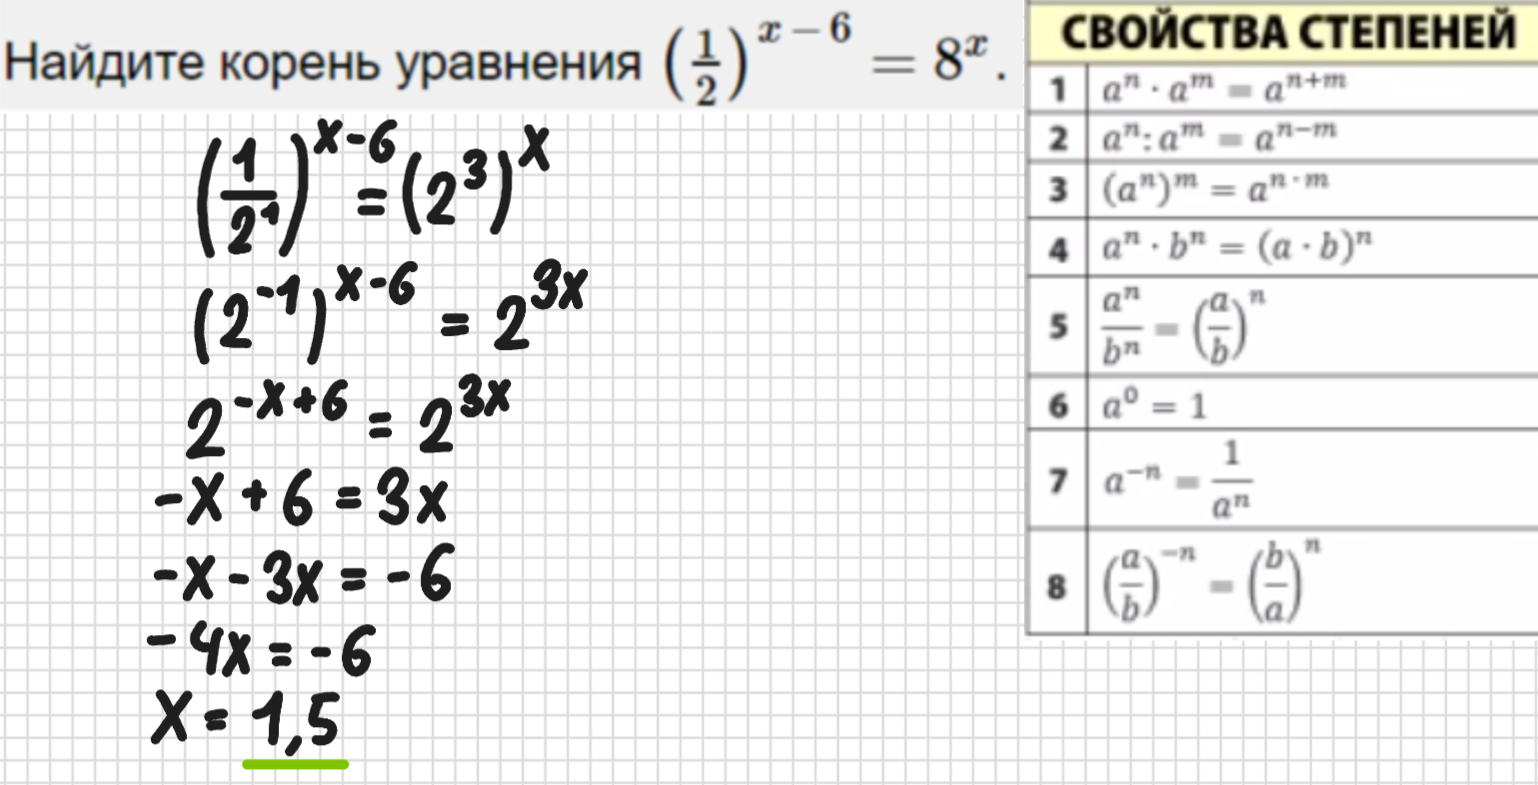 Найдите корень уравнения (1/2)^(x − 6) = 8^x.
(1/2^1)^(x-6) = (2^3)^x
(2^-1)^(x-6) = 2^(3x)
2^(-x+6) = 2^(3x)
-x + 6 = 3x
-x - 3x = -6
-4x = -6
x = 1,5
СВОЙСТВА СТЕПЕНЕЙ
1 a^n · a^m = a^(n+m)
2 a^n : a^m = a^(n−m)
3 (a^n)^m = a^(n · m)
4 a^n · b^n = (a · b)^n
5 a^n/b^n = (a/b)^n
6 a^0 = 1
7 a^(−n) = 1/a^n
8 (a/b)^(−n) = (b/a)^n